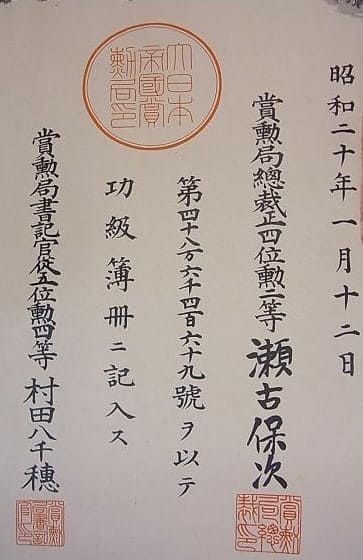 昭和二十年一月十二日
賞勲局總裁正四位勲二等瀬古保次
第四十八万六千四百六十九號ヲ以テ
功級簿冊ニ記入ス
大日本帝國賞勲局印
賞勲局書記官從五位勲四等村田八千穂
賞勲局總裁印